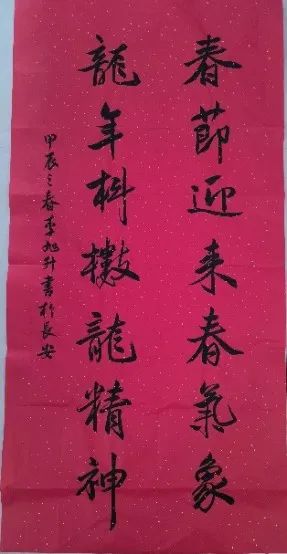 春節迎来春氣象
龍年抖擻龍精神
甲辰之春李旭升書於長安